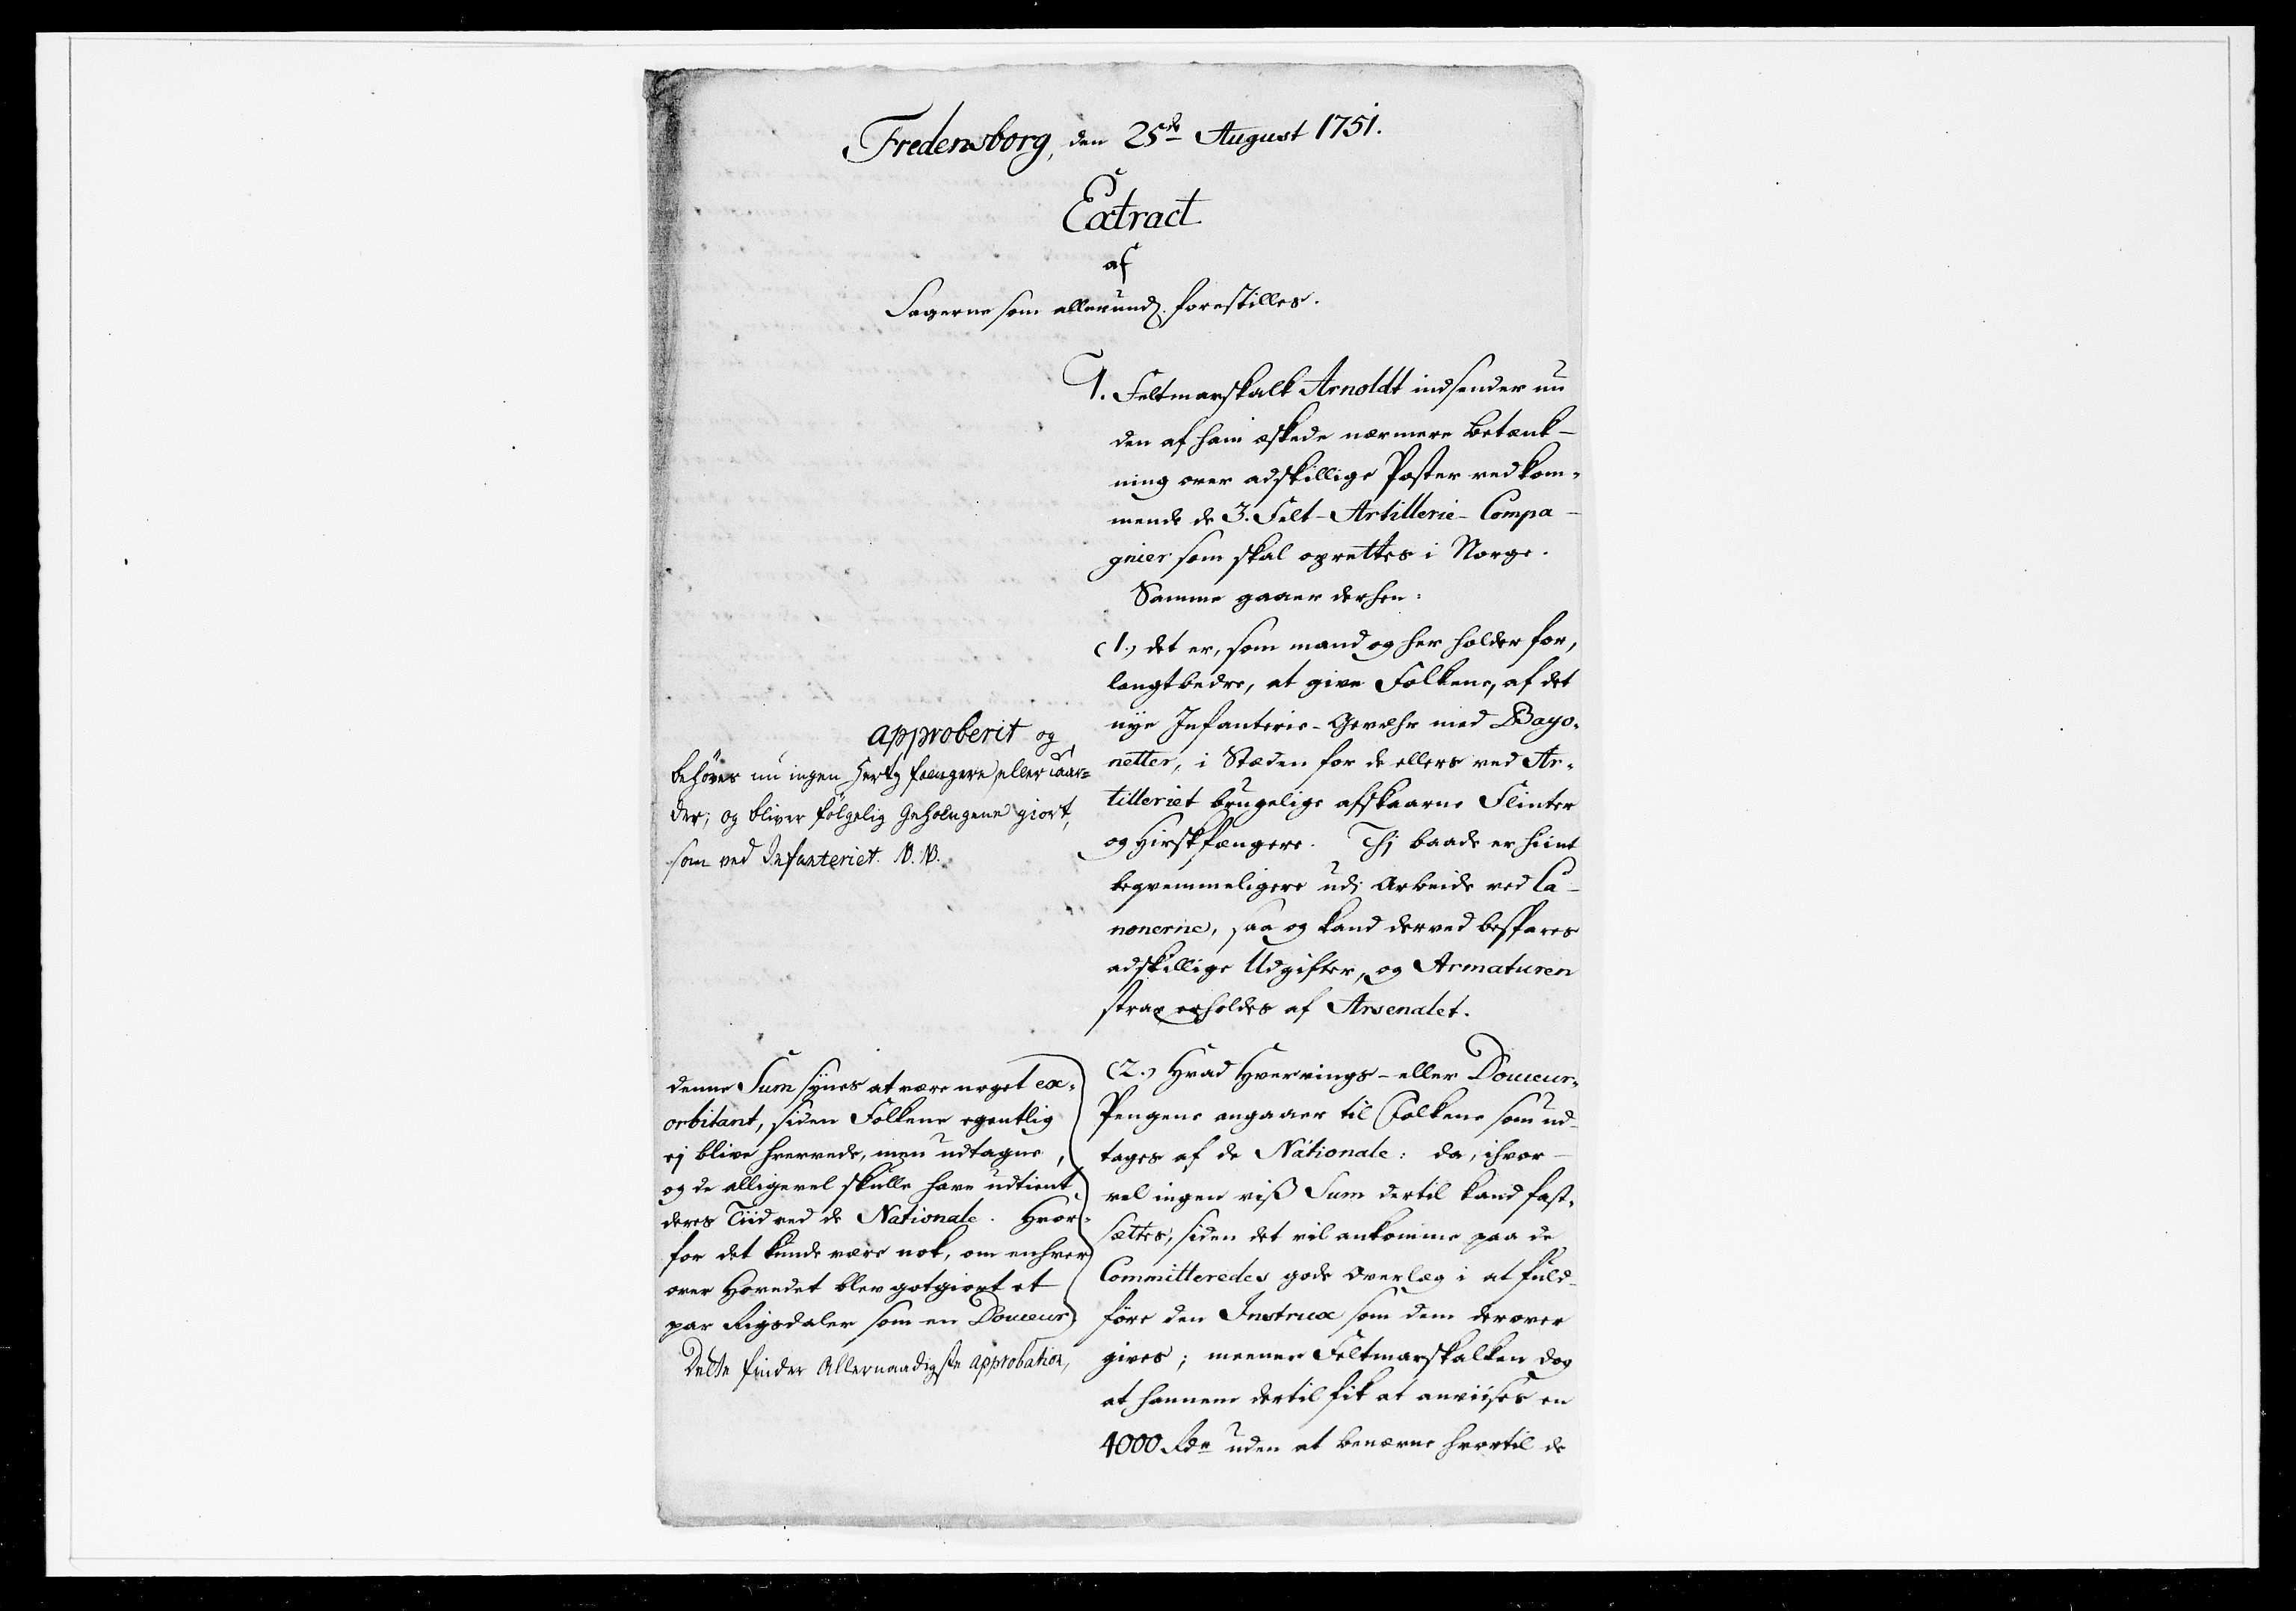 Fredensborg, den 25de August 1751.
Extract
af
Sagerne som allerund. forestilles.
1. Feltmarskalk Arnoldt indsender nu
den af ham æskede nærmere Betænk-
ning over adskillige Poster vedkom-
mende de 3. Felt-Artillerie-Compa-
gnier som skal oprettes i Norge.
Samme gaaer derhen:
(1.) det er, som mand og her holder for,
langt bedre, at give Folkene, af det
nye Infanterie-Gevæhr med Bayo-
netter, i Stæden for de ellers ved Ar-
tilleriet brugelige afskaarne Flinter
og Hirskfængere. Thi baade er hiint
beqvemmeligere udi Arbeide ved Ca-
nonerne, saa og kand derved bespares
adskillige Udgifter, og Armaturen
strax erholdes af Arsenalet.
approberit og
behøves nu ingen Hertz fængere, eller
der; og bliver følgelig Gehængene giort,
som ved Infanteriet. N.B.
(2.) Hvad Hverrings- eller Douceur-
Pengene angaaer til Folkene som ud-
tages af de Nationale: da, ihvor-
vel ingen viss Sum dertil kand fast-
sættes, siden det vil ankomme paa de
Committeredes gode Overlæg i at fuld-
føre den Instrux som dem derover
gives; meener Feltmarskalken dog
at hannem dertil fik at anviises en
4000 Rdr uden at benævne hvortil de
denne Sum synes at være noget ex-
orbitant, siden Folkene egentlig
ej blive hververde, men udtagne,
og de alligevel skulle have udtient
deres Tiid ved de Nationale. Hvor-
for det kunde være nok, om enhver
over Hovedet blev gotgiort et
par Rigsdaler som en Douceur
Dette finder Allernaadigste approbation,